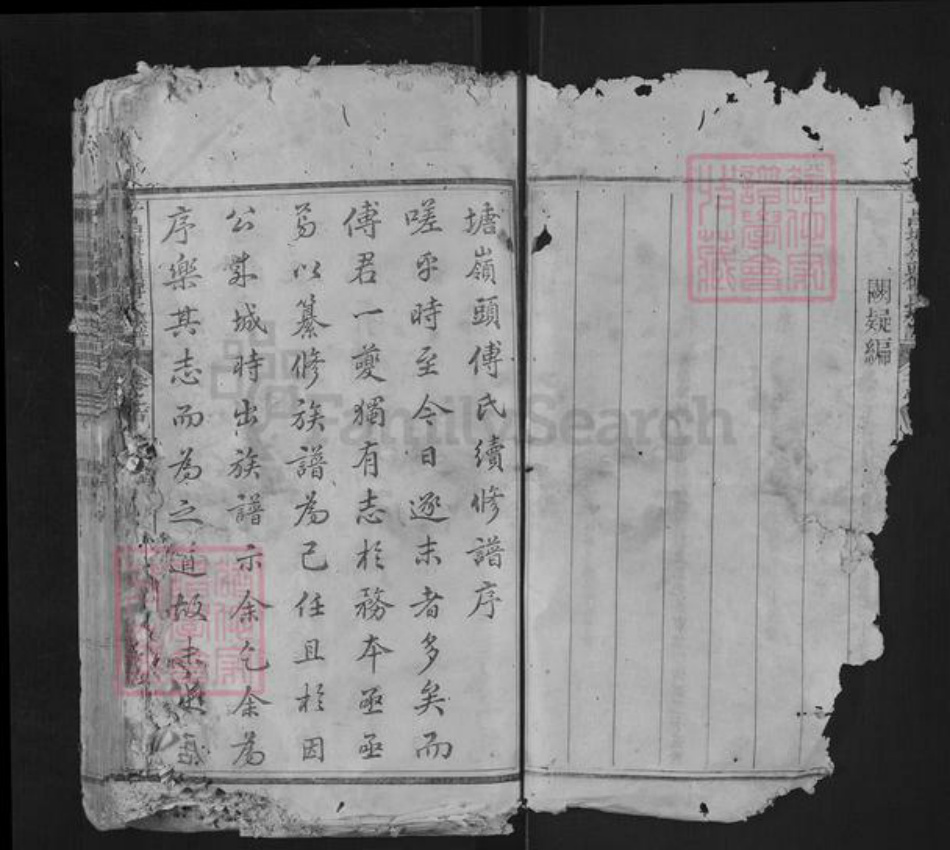 闕疑編
塘嶺頭傅氏續修譜序
嗟乎時至今日逐末者多矣而
傅君一夔獨有志於務本亟亟
焉以纂修族譜為己任且於因
公來城時出族譜示余乞余為
序樂其志而為之道故未從
FamilySearch